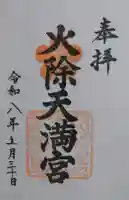 奉拝
火除天満宮
令和八年五月三十日